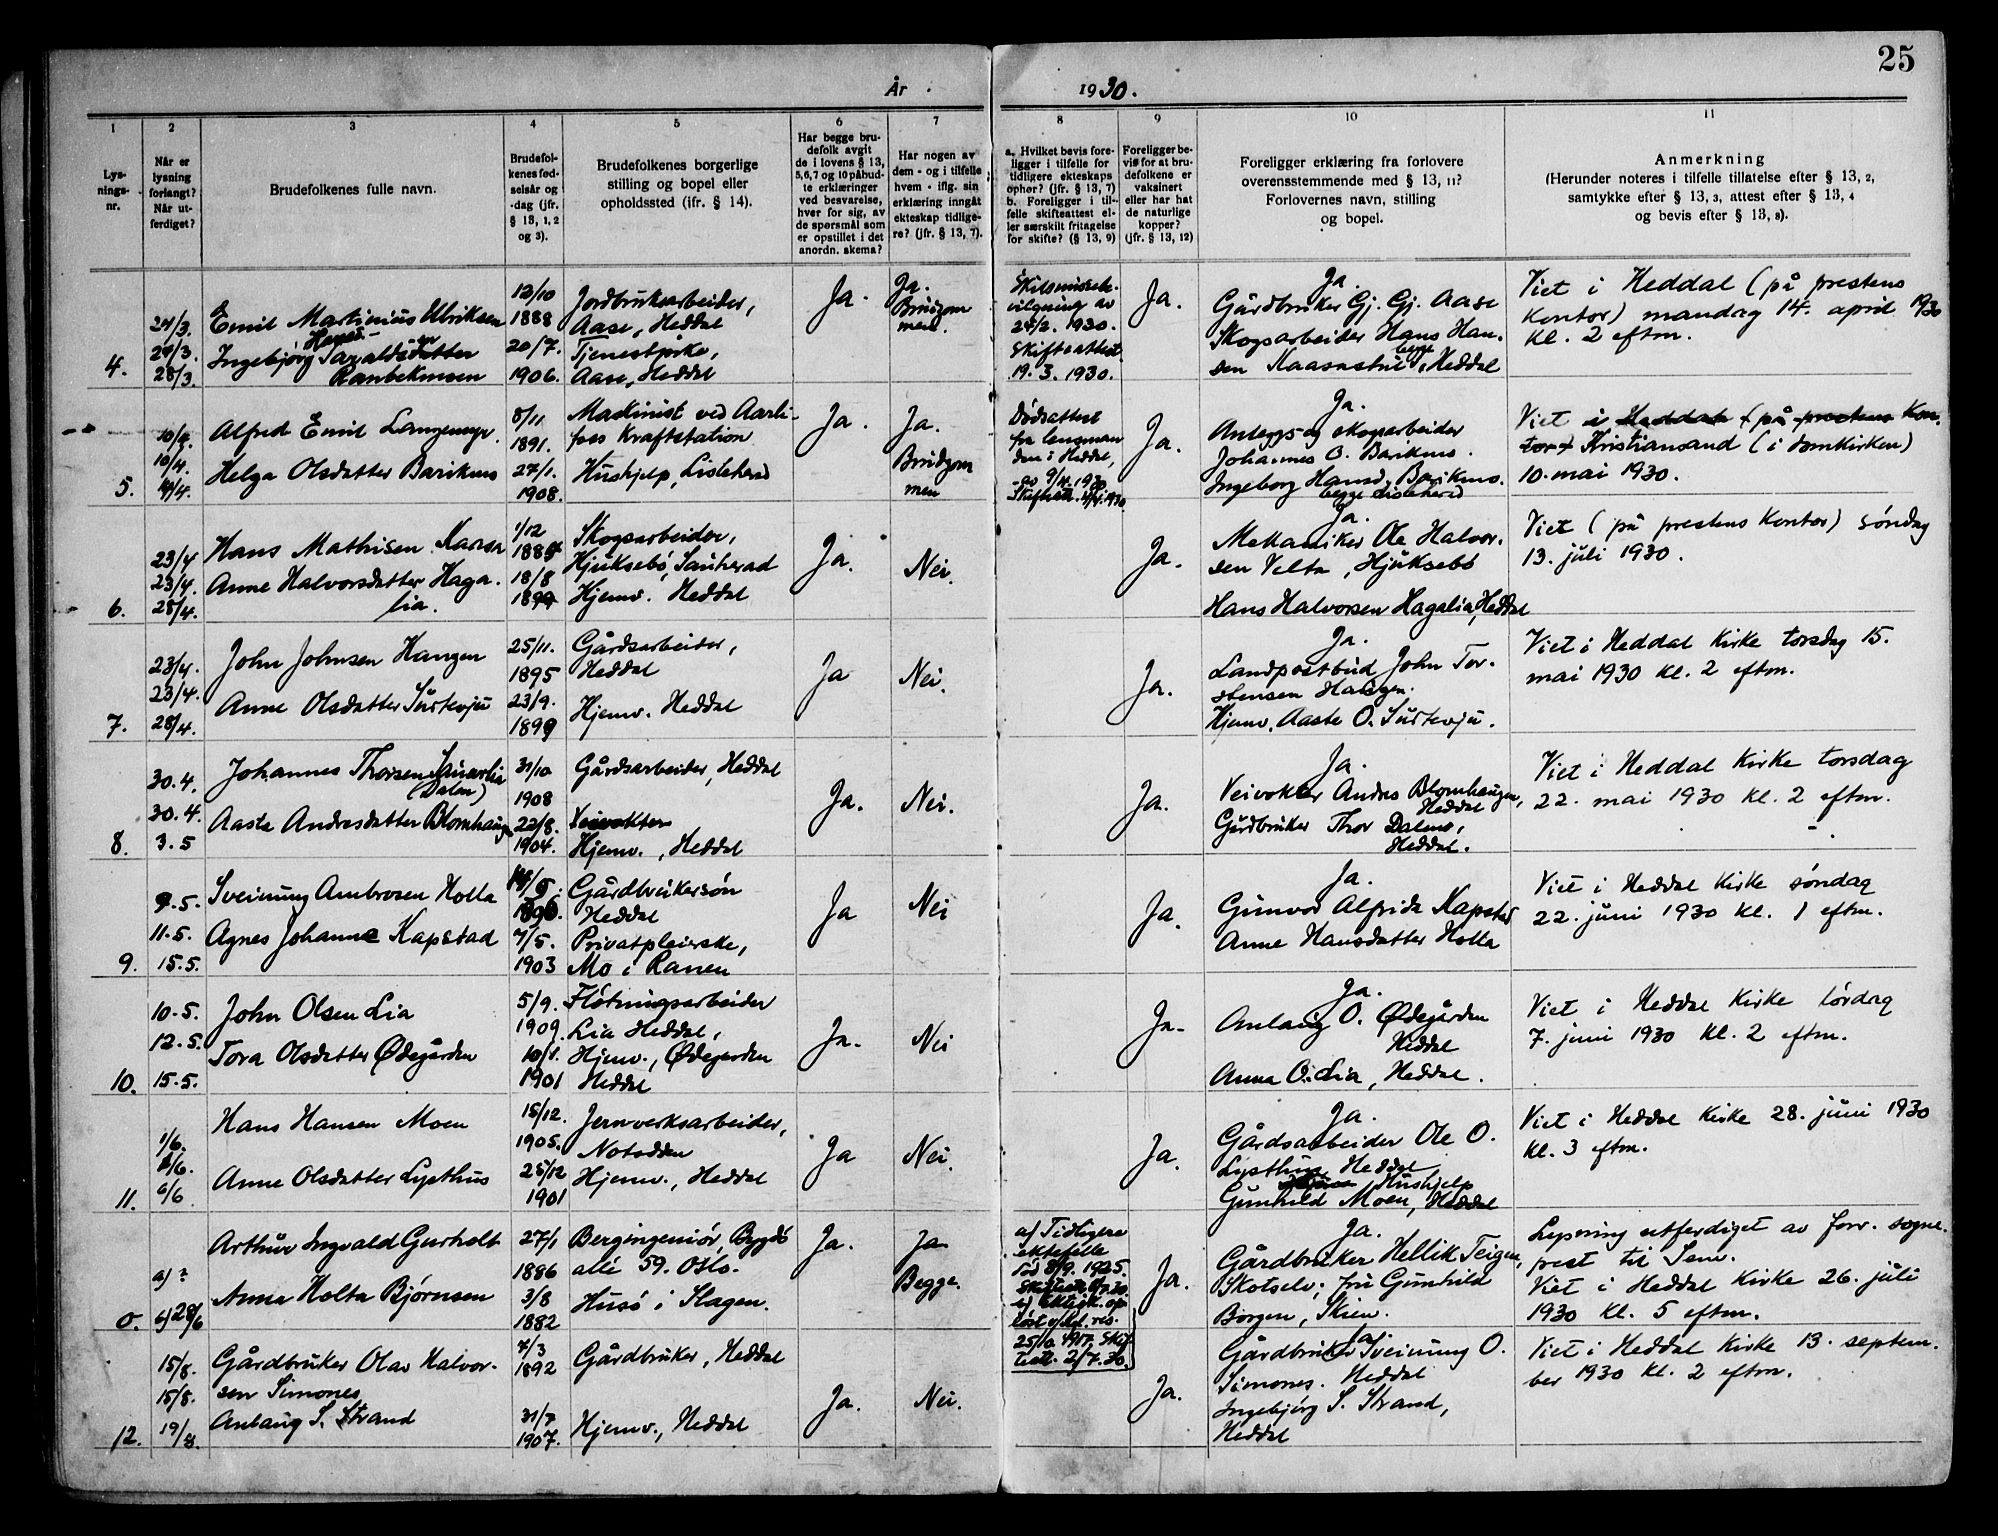 25
År 1930.
1 2 3 4 5 6 7 8 9 10 11
Lys-
nings-
nr.
Når er
lysning
forlangt?
Når ut-
ferdiget?
Brudefolkenes fulle navn.
Brudefol-
kenes fød-
selsår og
-dag (jfr.
§ 13, 1, 2
og 3).
Brudefolkenes borgerlige
stilling og bopel eller
opholdssted (ifr. § 14).
Har begge bru-
defolk avgit
de i lovens § 13,
5,6,7 og 10 påbud-
te erklæringer
ved besvarelse,
hver for sig, av
de spørsmål som
er opstillet i det
anordn. skema?
Har nogen av
dem - og i tilfelle
hvem - iflg. sin
erklæring inngått
ekteskap tidlige-
re? (jfr. § 13, 7).
a. Hvilket bevis fore-
ligger i tilfelle for
tidligere ekteskaps
ophør? (jfr. § 13, 7)
b. Foreligger i til-
felle skifteattest el-
ler særskilt fritagelse
for skifte? (§ 13, 9)
Foreligger be-
vis for at bru-
defolkene er
vaksinert
eller har hat
de naturlige
kopper?
(jfr. § 13, 12)
Foreligger erklæring fra forlovere
overensstemmende med § 13, 11?
Forlovernes navn, stilling
og bopel.
Anmerkning
(Herunder noteres i tilfelle tillatelse efter § 13, 2,
samtykke efter § 13, 3, attest efter § 13, 4
og bevis efter § 13, 8).
4.
24/3.
24/3.
28/3.
Emil Martinius Ulriksen
Ingebjørg
12/10
1888
20/7.
1906.
Jordbruksarbeider,
Aase, Heddal
Tjenestpike,
Aase, Heddal
Ja.
Ja.
Brudgom
men.
Skilsmisseb-
vilgning av
24/2. 1930.
Skifteattest
19. 3. 1930.
Ja.
Ja.
Gårdbruker Gj. Gj. Aase
Skogsarbeider Hans Han-
sen begge Heddal
Viet i Heddal (på prestens
kontor) mandag 14. april 1930
kl. 2 eftm.
5.
10/4.
10/4.
14/4.
Alfred Emil Langemyr.
Helga Olsdatter Barikmo
8/11
1891.
27/1.
1908.
Maskinist ved Aarli-
foss Kraftstation
Hushjelp, Lisleherad
Ja.
Ja.
Brudgom
men
Dødsattest
fra lensman
den i Heddal,
Ja.
Ja.
Anleggs- og skogsarbeider
Johannes O. Barikmo.
Ingeborg Hansd. Barikmo.
begge Lisleherad
Viet i Heddal (på prestens kon-
tor) Kristiansand (i domkirken)
10. mai 1930.
6.
23/4
23/4.
28/4.
Hans Mathisen Kaasa
Anne Halvorsdatter Haga-
lia.
1/12
18/8
Skogsarbeider,
Hjuksebø, Sauherad
Hjemv. Heddal
Ja.
Nei.
Ja.
Ja.
Mekaniker Ole Halvor-
sen Velta, Hjuksebø
Hans Halvorsen Hagalia, Heddal
Viet (på prestens kontor) søndag
13. juli 1930.
7.
23/4.
23/4.
28/4.
John Johnsen Haugen
Anne Olsdatter Surtevju
25/11.
1895
23/9.
1899
Gårdsarbeider,
Heddal
Hjemv. Heddal
Ja
Nei.
Ja.
Ja.
Landpostbud John Tor-
stensen Haugen.
Hjemv. Aaste O. Surtevju.
Viet i Heddal kirke torsdag 15.
mai 1930 kl. 2 eftm.
8.
30.4.
30.4.
3.5
Johannes Thorsen Sauarlia
(Dalen)
Aaste Andresdatter Blomhaugen
31/10
1908
22/8.
1904.
Gårdsarbeider, Heddal
Veivokter
Hjemv., Heddal
Ja.
Nei.
Ja.
Ja.
Veivokter Andres Blomhaugen,
Heddal
Gårdbruker Thor Dalen,
Heddal.
Viet i Heddal kirke torsdag
22. mai 1930 kl. 2 eftm.
9.
9.5.
11.5.
15.5.
Sveinung Ambrosen Holta
Agnes Johanne Kapstad
7/5.
1903
Gårdbrukersøn
Heddal
Privatpleierske,
Mo i Ranen
Ja
Nei
Ja.
Ja.
Gunvor Alfrida Kapstad
Anne Hansdatter Holta
Viet i Heddal kirke søndag
22. juni 1930 kl. 1 eftm.
10.
10.5.
12.5.
15.5.
John Olsen Lia
Tora Olsdatter Ødegården
5/9.
1909.
10/1.
1901
Fløtningsarbeider
Lia Heddal,
Hjemv., Ødegården
Heddal
Ja.
Nei
Ja.
Ja.
Anlaug O. Ødegården
Heddal
Anna O. Lia, Heddal.
Viet i Heddal kirke lørdag
7. juni 1930 kl. 2 eftm.
11.
1/6.
6/6
Hans Hansen Moen
Anne Olsdatter Lysthus
15/12.
1905.
25/12
1901
Jernverksarbeider,
Notodden
Hjemv., Heddal
Ja
Nei.
Ja.
Ja.
Gårdsarbeider Ole O.
Lysthus Heddal
Hushjelp
Gunhild Moen, Heddal
Viet i Heddal kirke 28. juni 1930
kl. 3 eftm.
0.
a) ?
b) 28/6
Arthur Ingvald Gurholt
Anna Holta Bjørnsen
27/1
1886
3/8
1882
Bergingeniør, Bygdø
allé 59. Oslo.
Husø i Slagen.
Ja.
Ja
Begge.
a) Tidligere
ektefelle
død 8/9. 1925.
Ja.
Ja.
Gårdbruker Hellik Teigen,
Skotselv; fru Gunhild
Borgen, Skien.
Lysning utferdiget av forr. sogne-
prest til Sem.
Viet i Heddal kirke 26. juli
1930 kl. 5 eftm.
12.
15/8.
15/8.
19/8.
Gårdbruker Olav Halvor-
sen Simones
Anlaug S. Strand
7/3
1892
31/7
1907.
Gårdbruker, Heddal
Hjemv., Heddal
Ja.
Nei.
Ja.
Ja.
Gårdbruker Sveinung O.
Simones. Heddal
Ingebjørg S. Strand,
Heddal
Viet i Heddal kirke 13. septem-
ber 1930 kl. 2 eftm.